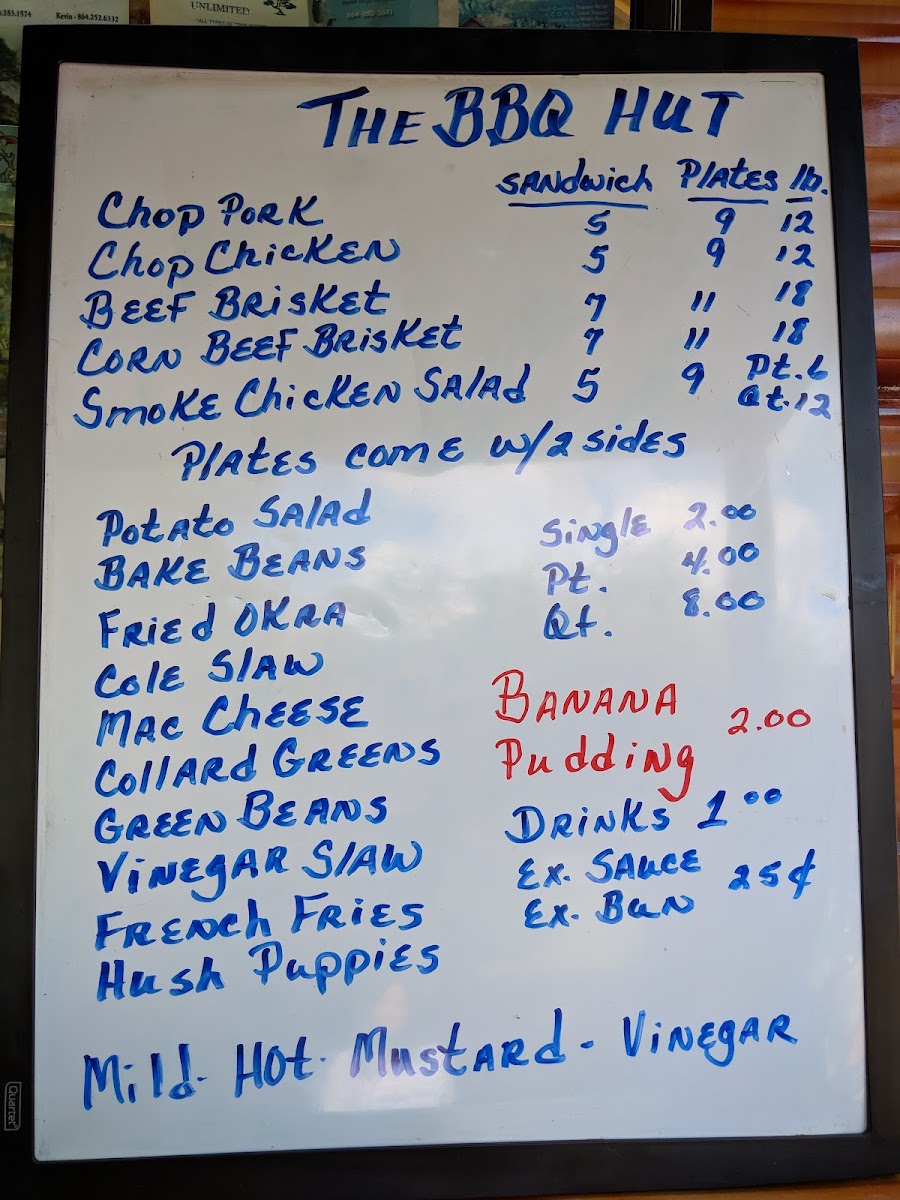 .283.1574
Kevin - 864.252.6332
UNLIMITED
THE BBQ HUT
SANDWICH PLATES lb.
CHOP PORK 5 9 12
CHOP CHICKEN 5 9 12
BEEF BRISKET 7 11 18
CORN BEEF BRISKET 7 11 18
SMOKE CHICKEN SALAD 5 9 Pt. 6
Qt. 12
PLATES COME W/2 SIDES
POTATO SALAD
BAKE BEANS
FRIED OKRA
COLE SLAW
MAC CHEESE
COLLARD GREENS
GREEN BEANS
VINEGAR SLAW
FRENCH FRIES
HUSH PUPPIES
Single 2.00
Pt. 4.00
Qt. 8.00
BANANA
PUDDING 2.00
DRINKS 1.00
EX. SAUCE
EX. BUN 25¢
MILD - HOT - MUSTARD - VINEGAR
Quartet